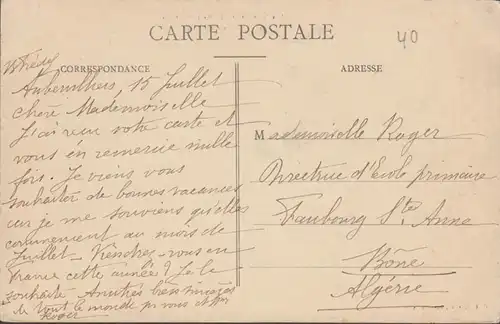 CARTE POSTALE
40
CORRESPONDANCE
ADRESSE
Aubervilliers, 15 Juillet
chère Mademoiselle
J'ai reçu votre carte et
vous en remercie mille
fois. Je viens vous
souhaiter de bonnes vacances
car je me souviens qu'elles
commencent au mois de
Juillet. Viendrez-vous en
France cette année? Je le
souhaite
de tout le monde pr vous et
Roger
Mademoiselle Roger
Directrice d'Ecole primaire
Faubourg Ste Anne
Bône
Algérie